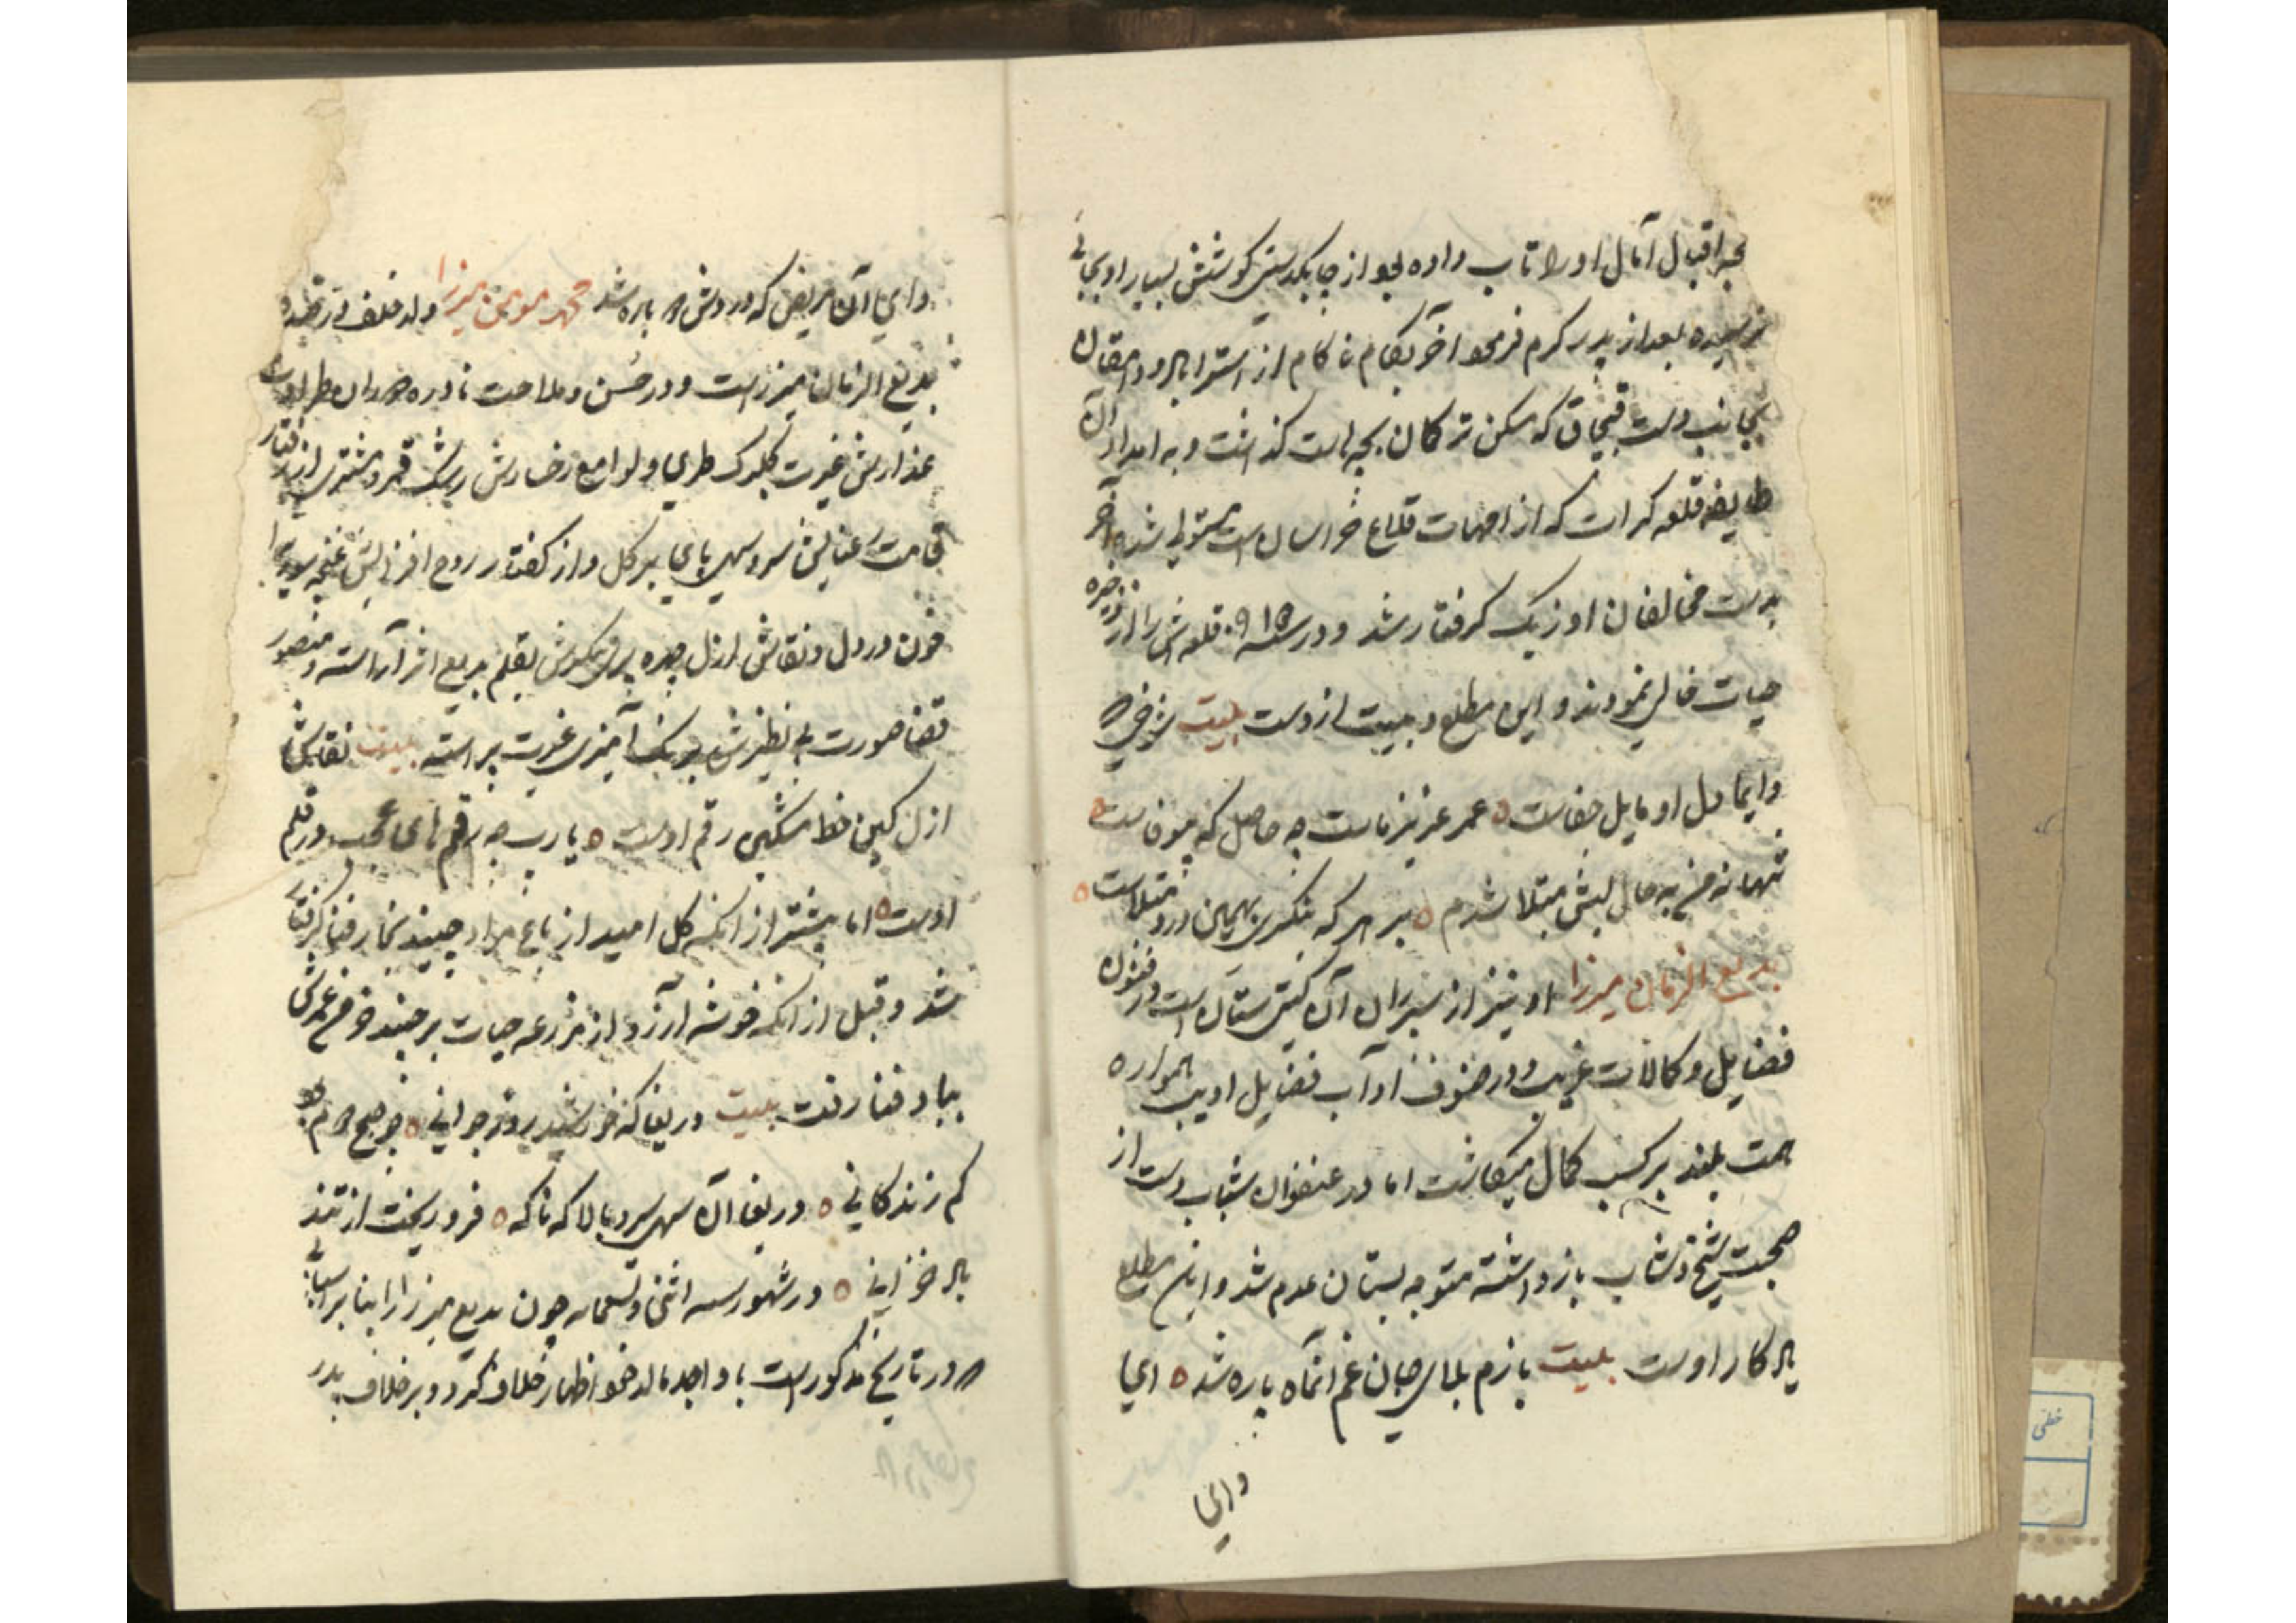 بحر اقبال آمال او را تاب داده بود از چابکدستی کوشش بسیار او بجائی
نرسیده بعد از پدر مکرم خود آخر بکام ناکام از استراباد و دامغان
بجانب دشت قبچاق که مسکن ترکان بچه است گذشت و به امداد آن
طایفه قلعه کرات که از امهات قلاع خراسان است مستولی شد و آخر
بدست مخالفان اوزبک گرفتار شد و در سنه ۹۱۵ قلعه اش را از ذخیره
حیات خالی نمودند و این مطلع و بیت ازوست بیت شوخی که
دایما دل او مایل جفاست عمر عزیز ماست چه حاصل که بیوفاست
تنها نه من به خال لبش مبتلا شدم بر هر که بنگری بهمین درد مبتلاست
بدیع الزمان میرزا او نیز از پسران آن گیتی ستان است در فنون
فضایل و کمالات غریب و در صنوف آداب فضایل ادیب همواره
همت بلند بر کسب کمال میگماشت اما در عنفوان شباب دست از
صحبت شیخ و شاب باز داشته متوجه بستان عدم شد و این مطلع
یادگار اوست بیت بازم بلای جان غم آنماه پاره شد ای
وای
وای آن مریض که دردش دوباره شد محمد مومن میرزا ولد خلف
بدیع الزمان میرزاست و در حسن و ملاحت نادره دوران طراوت
عذارش غیرت گلبرگ طری و لوامع رخسارش رشک قمر و مشتری از رفتار
قامت رعنایش سرو سهی پای در گل و از گفتار روح افزای لبش غنچه سیراب
خون در دل و نقاش ازل چهره پری پیکرش بقلم بدیع اثر آراسته و مصور
قضا صورت بی نظیرش برنگ آمیزی غریب پیراسته بیت نقاش
ازل کین خط مشکین رقم اوست یارب چه رقم های عجب در قلم
اوست اما پیشتر از آنکه گل امید از باغ مراد چیند بخار فنا گرفتار
شد و قبل از آنکه خوشه آرزو از مزرعه حیات برچیند خرمن عمرش
بباد فنا رفت بیت دریغا که خورشید روز جوانی چو صبح دوم بود
کم زندگانی دریغا آن سهی سرو بالا که ناگه فرو ریخت از تند
باد خزانی در شهور سنه اثنی و تسعمائه چون بدیع میرزا را بنابر اسبابی
که در تاریخ مذکور است با والد ماجد خود اظهار خلاف کرد و بر خلاف پدر
خطی